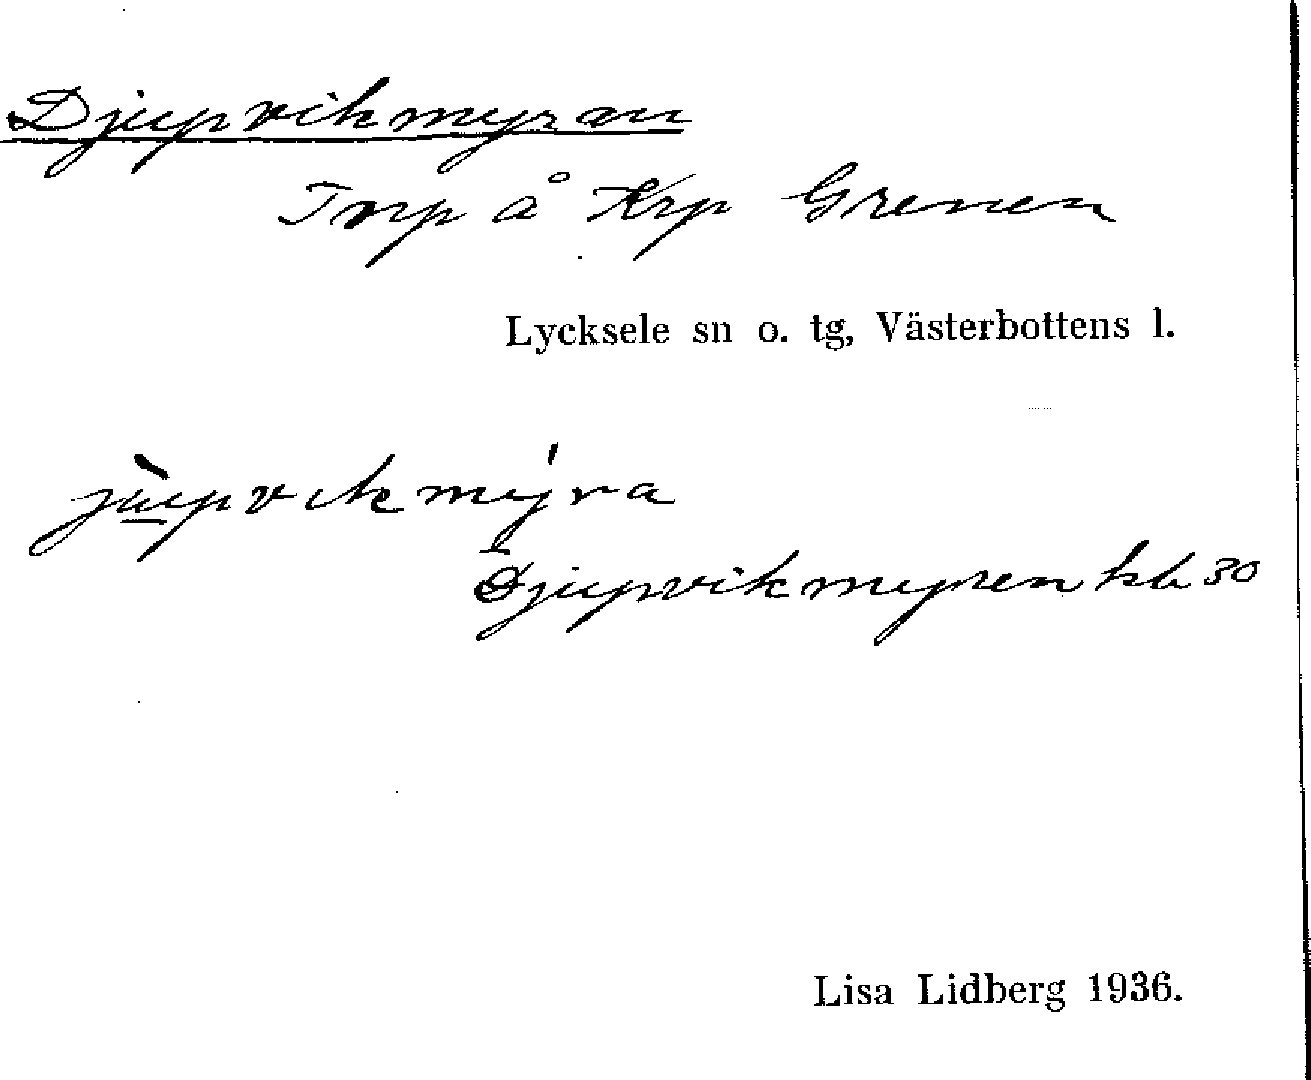 Djupvikmyran
Torp å Krp Grenen
Lycksele sn o. tg, Västerbottens l.
jùpvikmýra
Djupvikmyren hb 30
Lisa Lidberg 1936.